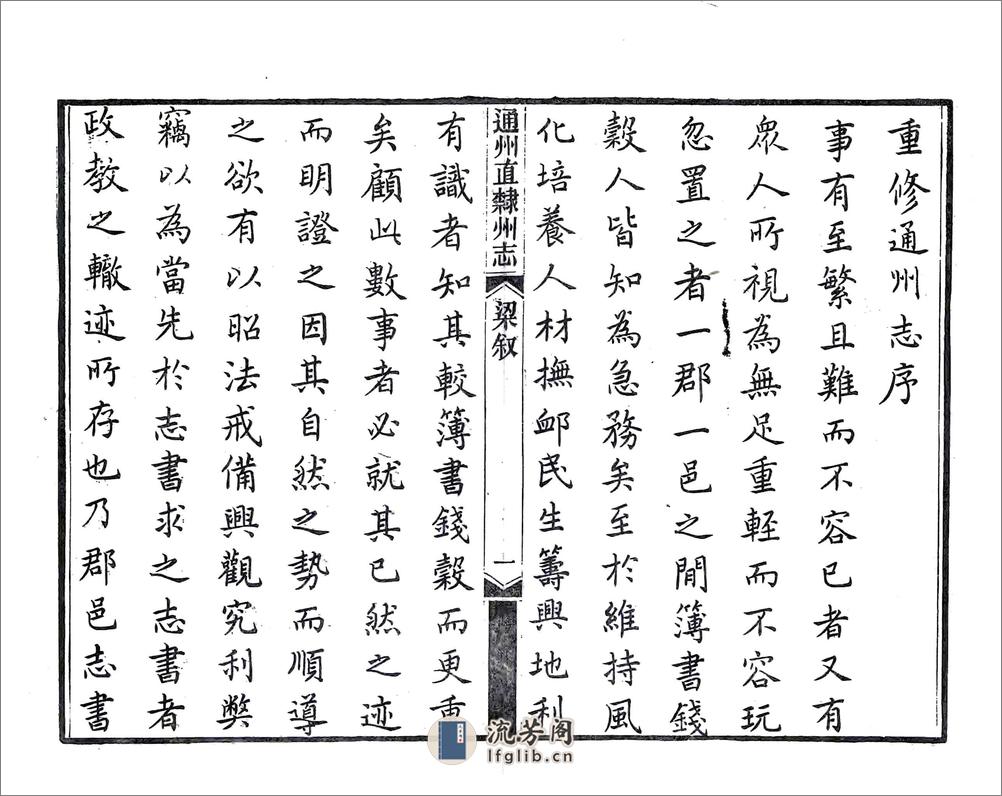 重修通州志序
事有至繁且難而不容已者又有
眾人所視為無足重輊而不容玩
忽置之者一郡一邑之間簿書錢
穀人皆知為急務矣至於維持風
化培養人材撫卹民生籌興地利
通州直隸州志
梁叙
一
有識者知其較簿書錢穀而更重
矣顧此數事者必就其已然之迹
而明證之因其自然之勢而順導
之欲有以昭法戒備興觀究利弊
竊以為當先於志書求之志書者
政教之轍迹所存也乃郡邑志書
流芳阁
lfglib.cn